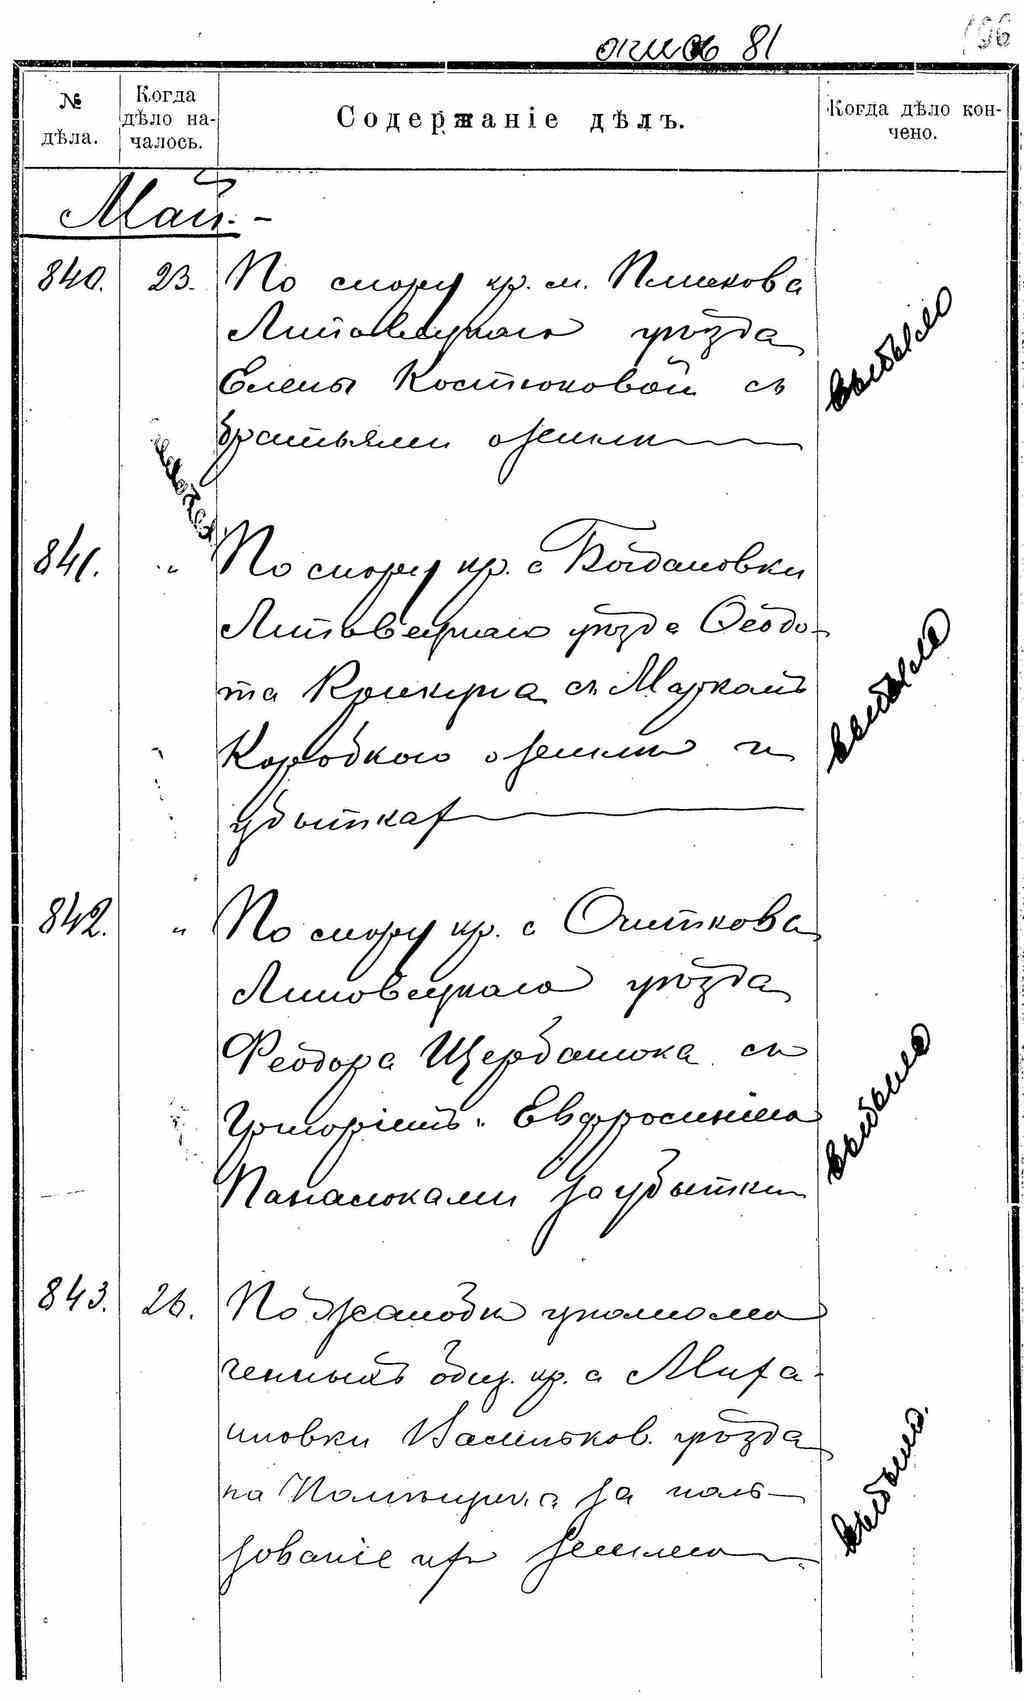 опись 81
196
№ дѣла.
Когда дѣло началось.
Содержаніе дѣлъ.
Когда дѣло кончено.
Май.-
840. 23. По спору кр. м. Плискова
Липовецкаго уѣзда
Елены Костюковой съ
братьями о землѣ
выбыло
841. " По спору кр. с Богдановки
Липовецкаго уѣзда Ѳеодо-
та Крикуна съ Маркомъ
Коробкою о землѣ и
убыткахъ
выбыло
842. " По спору кр. с Очиткова
Липовецкаго уѣзда
Феодора Щербатюка съ
Григоріемъ и Евфросиніею
Панасюками за убытки
выбыло
843. 26. По жалобѣ уполномо
ченныхъ общ. кр. с
Васильков. уѣзда
на за поль-
зованіе ихъ землею
выбыло.